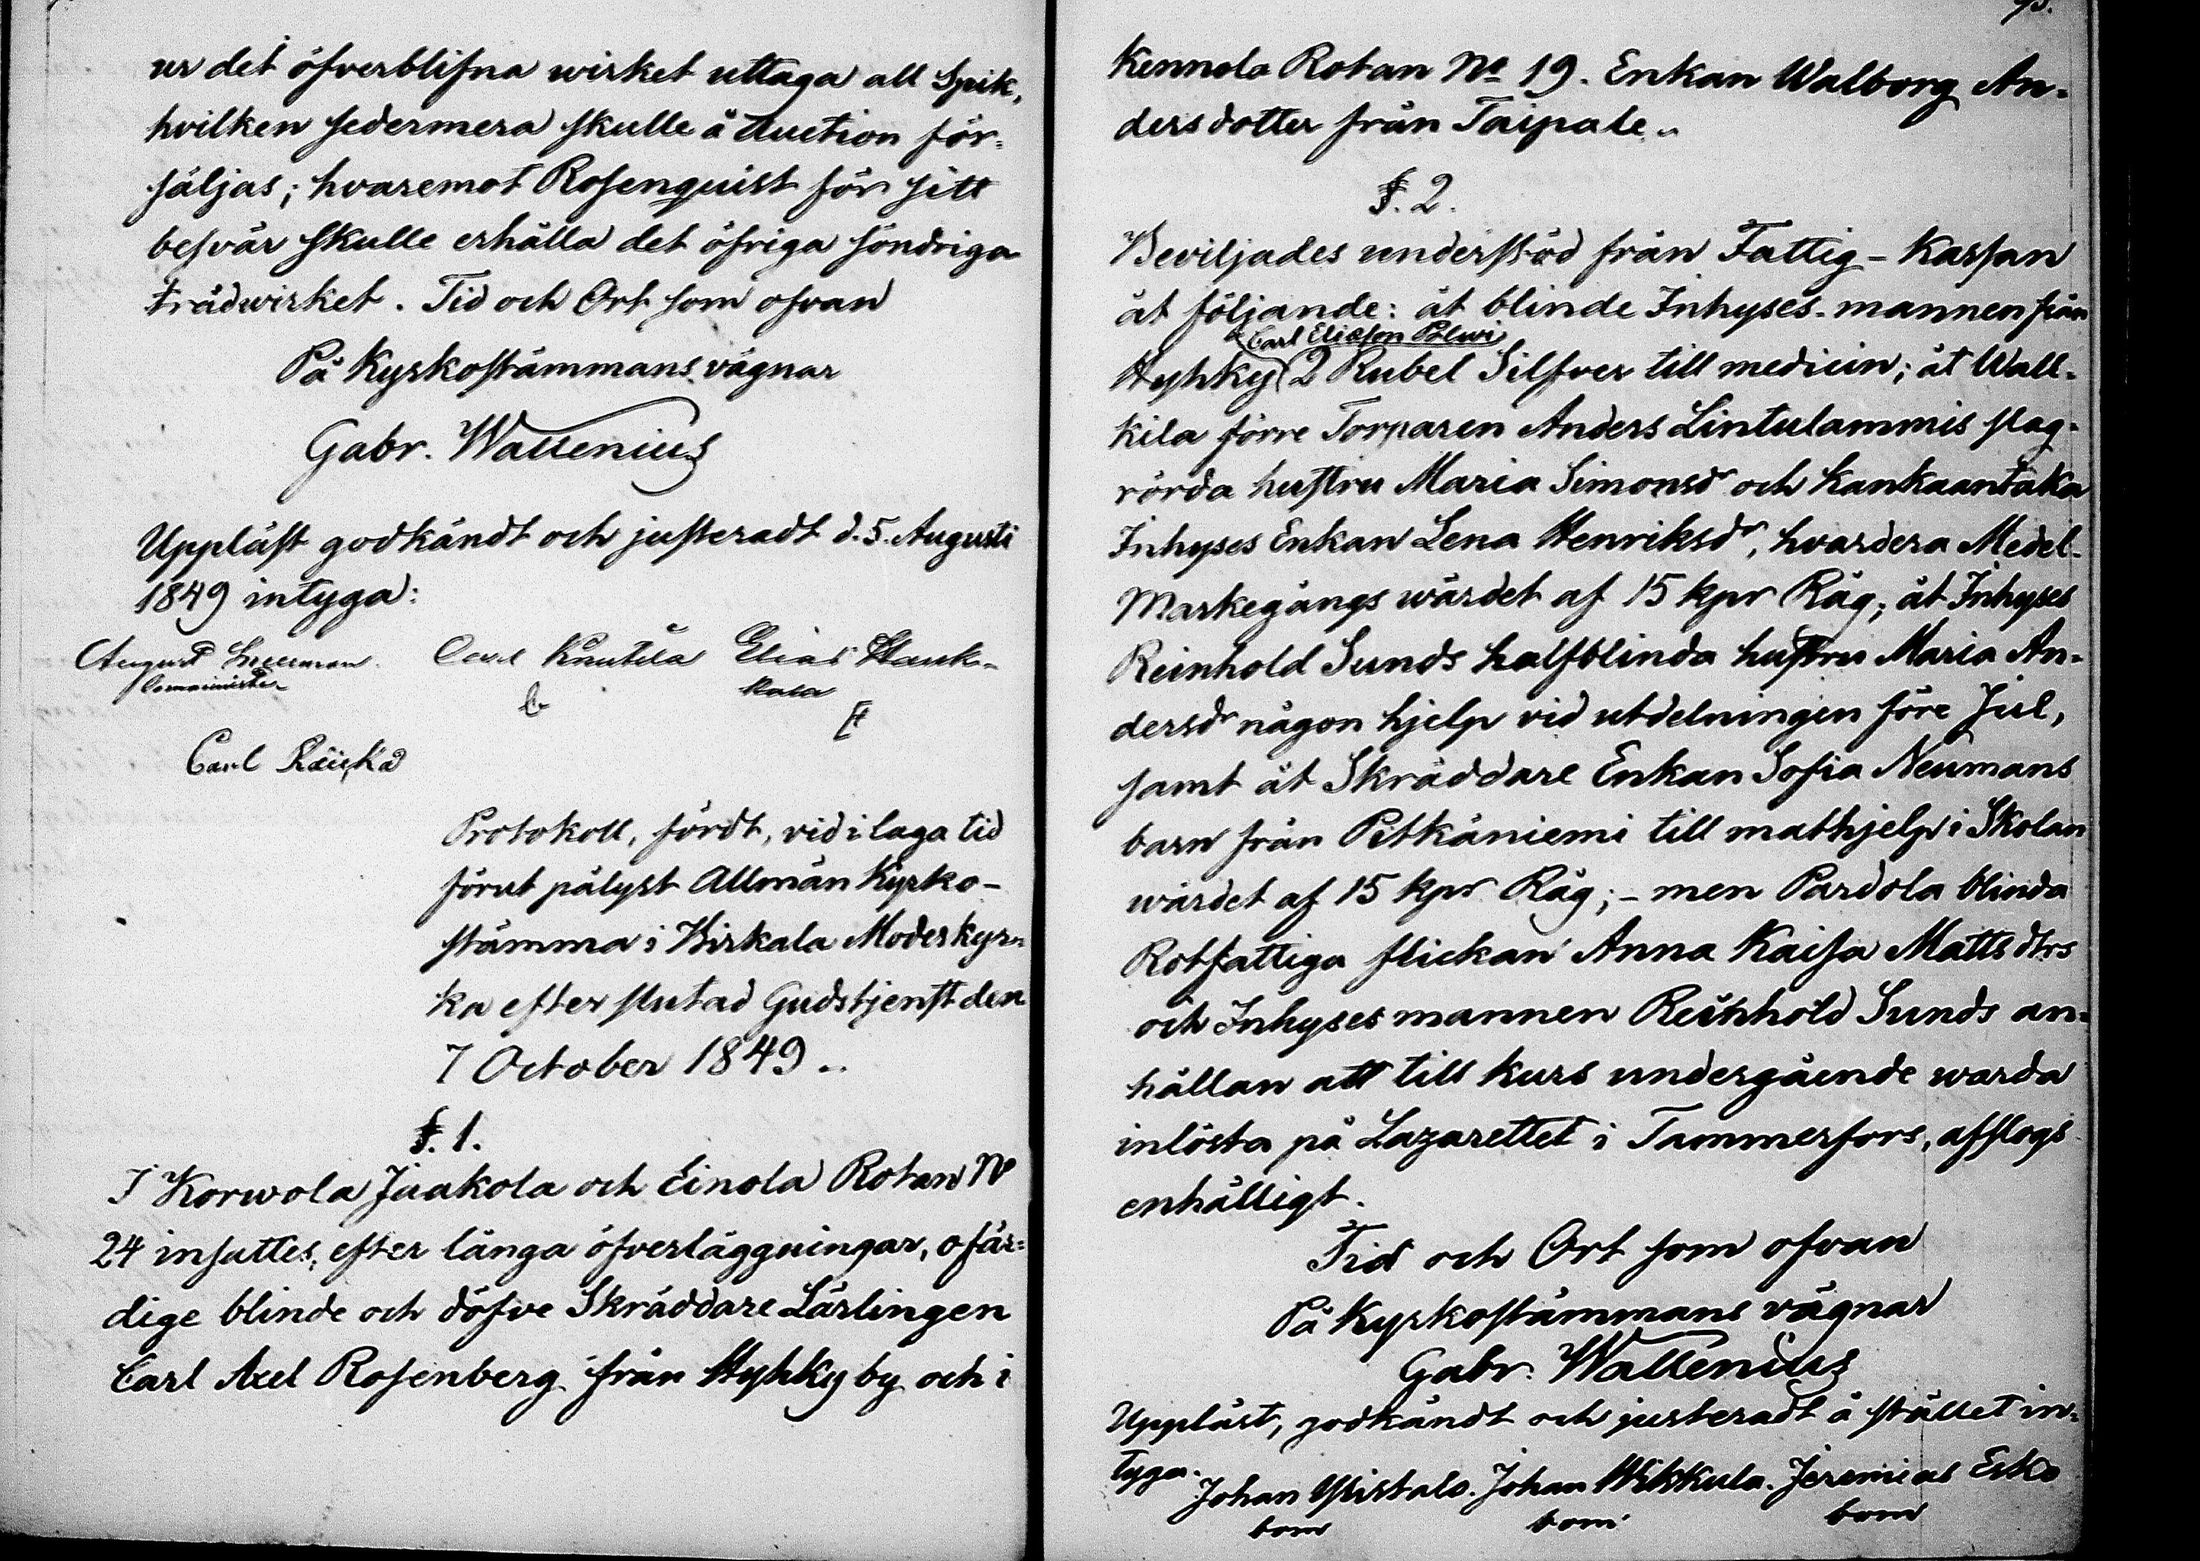 ur det öfverblifna wirket uttaga all Spik,
hvilken sedermera skulle å Auction för-
säljas; hvaremot Rosenquist för sitt
besvär skulle erhålla det öfriga söndriga
trädwirket. Tid och Ort som ofvan
På Kyrkostämmans vägnar
Gabr. Wallenius
Uppläst godkändt och justeradt d. 5. Augusti
1849 intyga:
August
Carl Knutila Elias Hauk-
kala
Carl Räikä
Protokoll, fördt, vid i laga tid
förut pålyst Allmän Kyrko-
stämma i Birkala Moderkyr-
ka efter slutad Gudstjenst den
7 October 1849..
§. 1.
I Korwola Jaakola och Einola Rotan No
24 insattes, efter långa öfverläggningar, ofär-
dige blinde och döfve Skräddare Lärlingen
Carl Axel Rosenberg från Hyhky by och i
Kennola Rotan No 19. Enkan Walborg An-
dersdotter från Taipale..
§. 2.
Beviljades understöd från Fattig-Kassan
åt följande: åt blinde Inhyses-mannen från
Carl Eliasson Polwi
Hyhky 2 Rubel Silfver till medicin; åt Wall-
kila förre Torparen Anders Lintulammis slag-
rörda hustru Maria Simonsdr och Kankaantaka
Inhyses Enkan Lena Henriksdr, hvardera Medel-
Markegångs wärdet af 15 kpr Råg; åt Inhyses
Reinhold Sunds halfblinda hustru Maria An-
dersdr någon hjelp vid utdelningen före Jul,
samt åt Skräddare Enkan Sofia Neumans
barn från Pitkäniemi till mathjelp i Skolan
wärdet af 15 kpr Råg; - men Pardola blinda
Rotfattiga flickan Anna Kaisa Mattsdtrs
och Inhysesmannen Reinhold Sunds an-
hållan att till kurs undergående warda
inlösta på Lazarettet i Tammerfors, afslogs
enhälligt.
Tid och Ort som ofvan
På Kyrkostämmans vägnar
Gabr. Wallenius
Uppläst, godkändt och justeradt å stället in-
tyga.
Johan Johan Wikkula. Jeremias Esko
bom bom bom